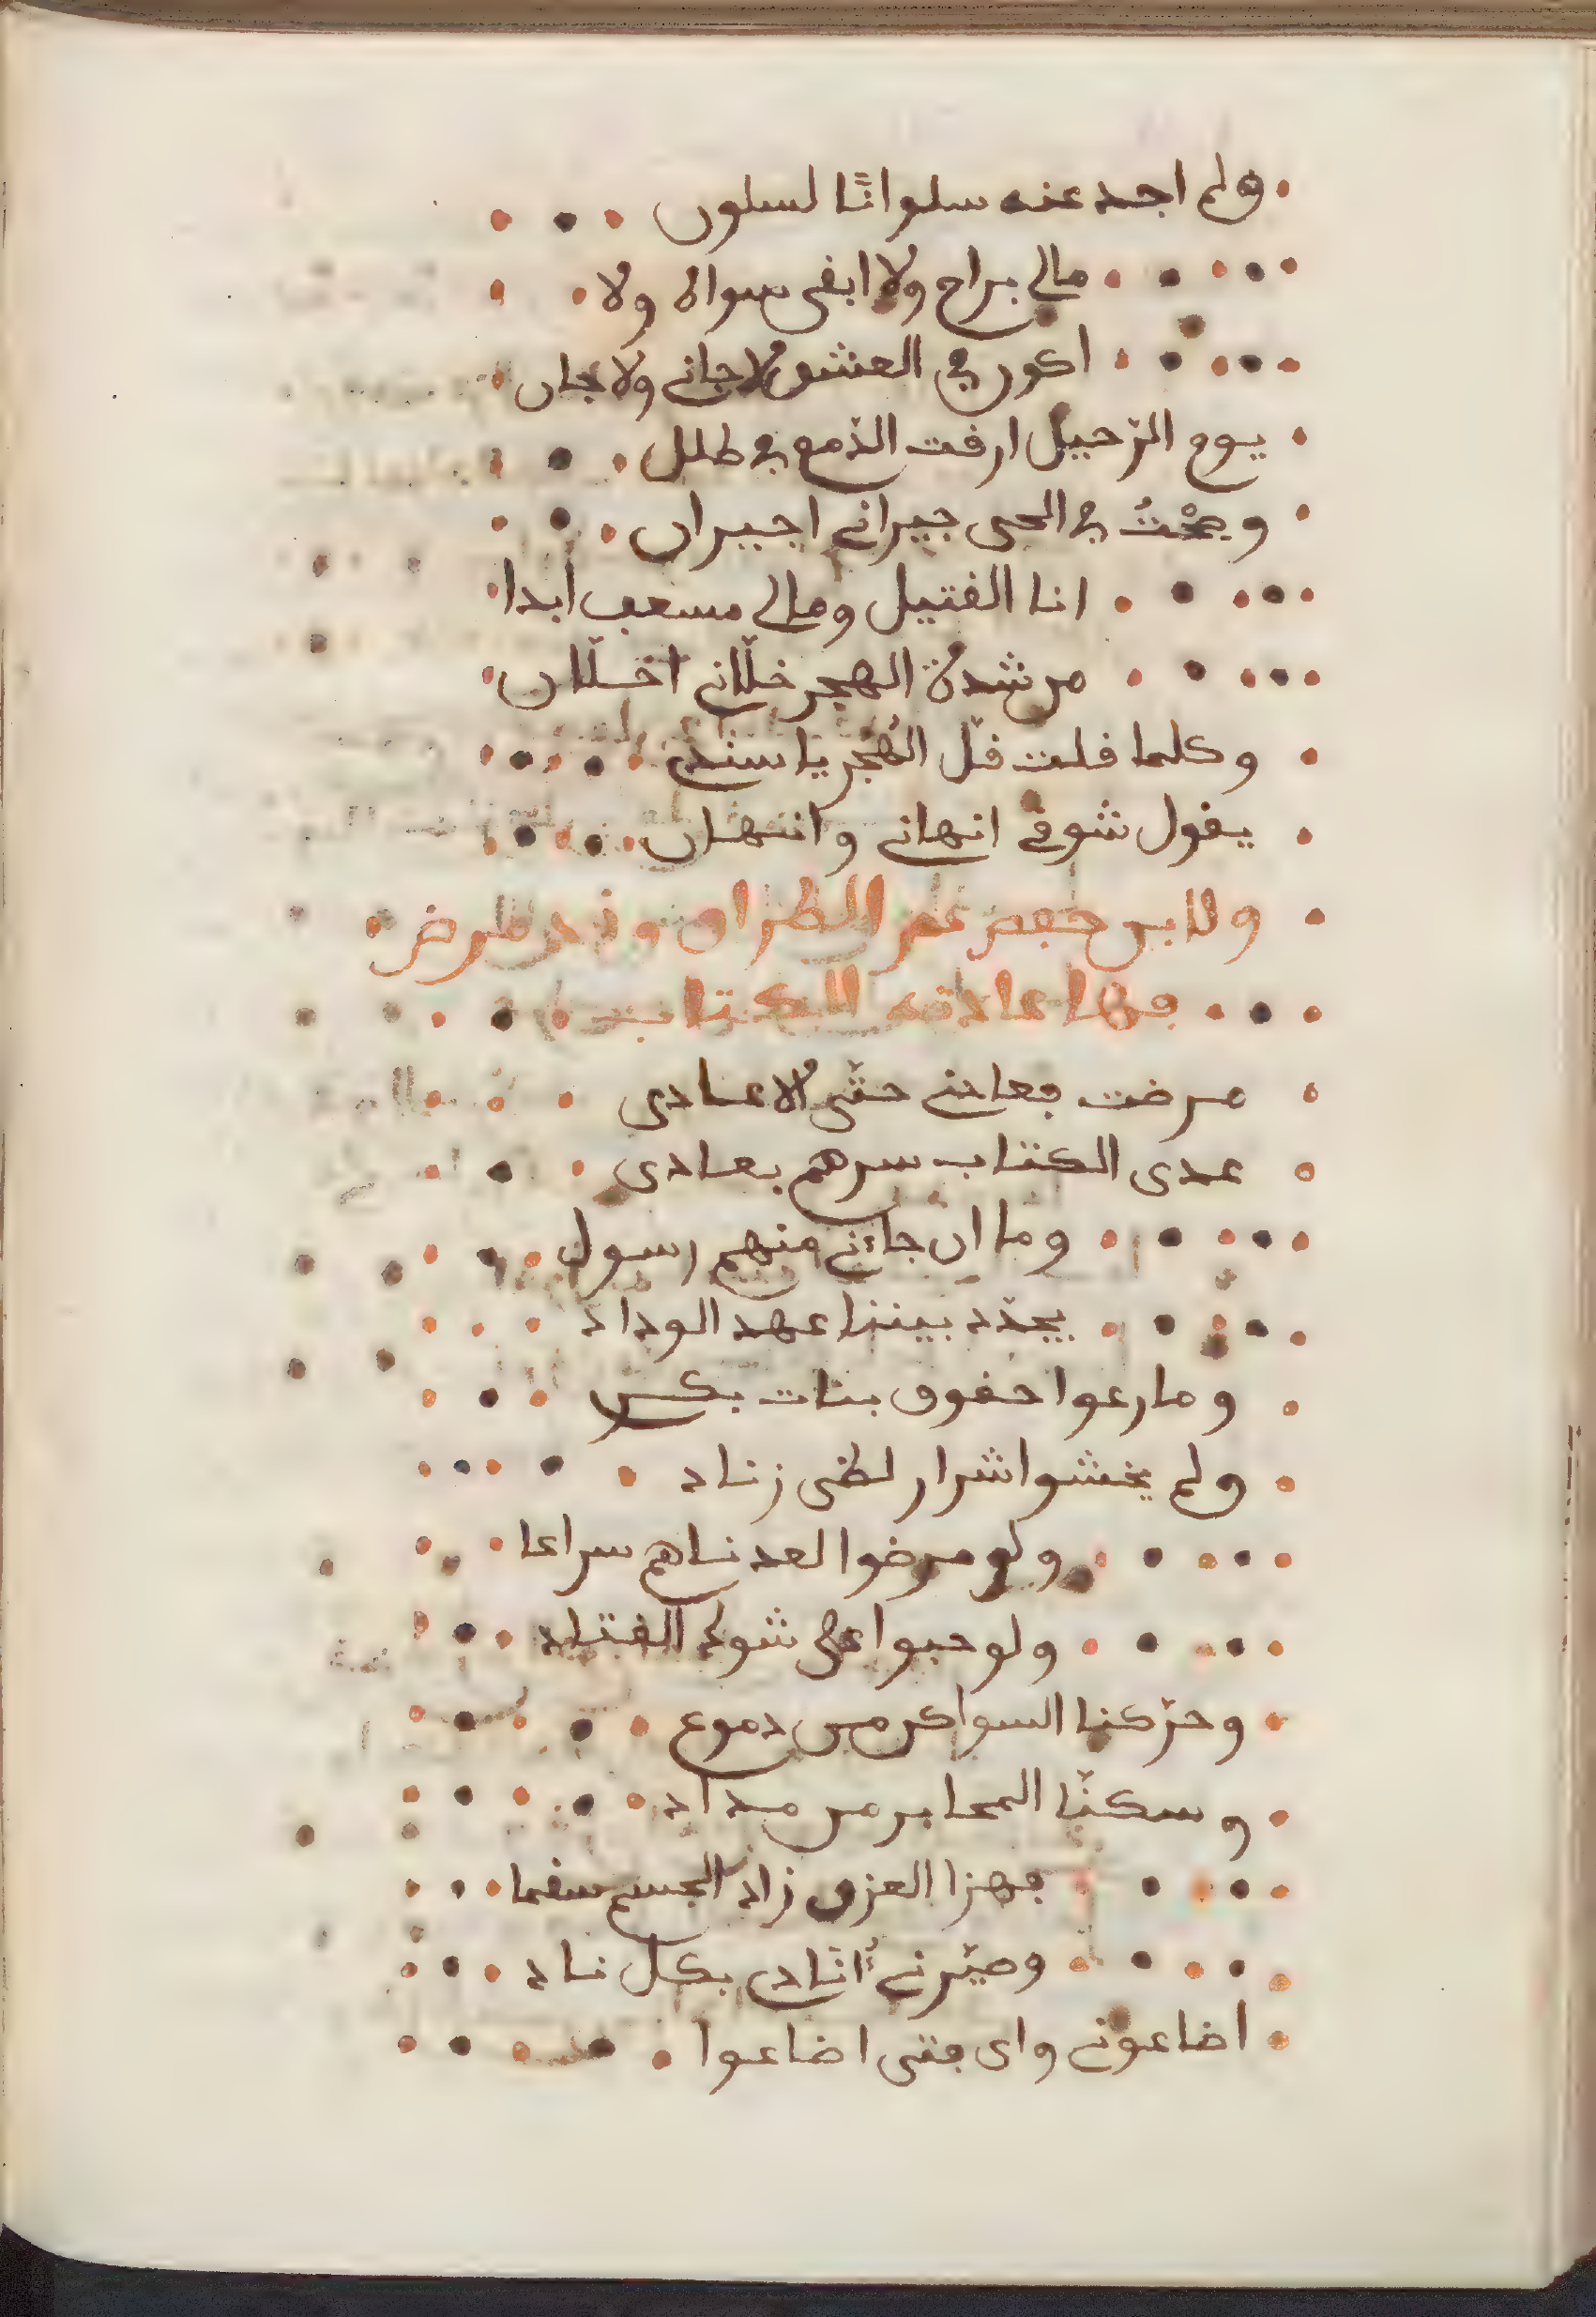 ولم اجد عنه سلوانًا لسلوان
مالي براح ولا ابغي سواه ولا
اكون في العشق لا جاني ولا جان
يوم الرّحيل ارقت الدّمع في طلل
وصحْتُ في الحي جيراني اجيران
انا القتيل ومالي مسعف ابدا
من شدة الهجر خلّاني اخلّان
وكلما قلت قلّ الهجر يا سندي
يقول شوقي انهاني وانهان
ولابن حجر عمر الطراق وقد مرض
فما عادته الكتاب
مرضت فعادني حتّى الاعادي
عدى الكتاب سرهم بعادي
وما ان جاءني منهم رسول
يجدّد بيننا عهد الوداد
وما رعوا حقوق بنات بكر
ولم يخشوا شرار لظى زناد
ولو مرضوا لعدناهم سراعا
ولو حبوا على شوك القتاد
وحرّكنا السواكن من دموع
وسكنّا المحابر من مداد
فهذا العزو زاد الجسم سقما
وصيّرني اُنادي بكل ناد
اضاعوني واى فتى اضاعوا